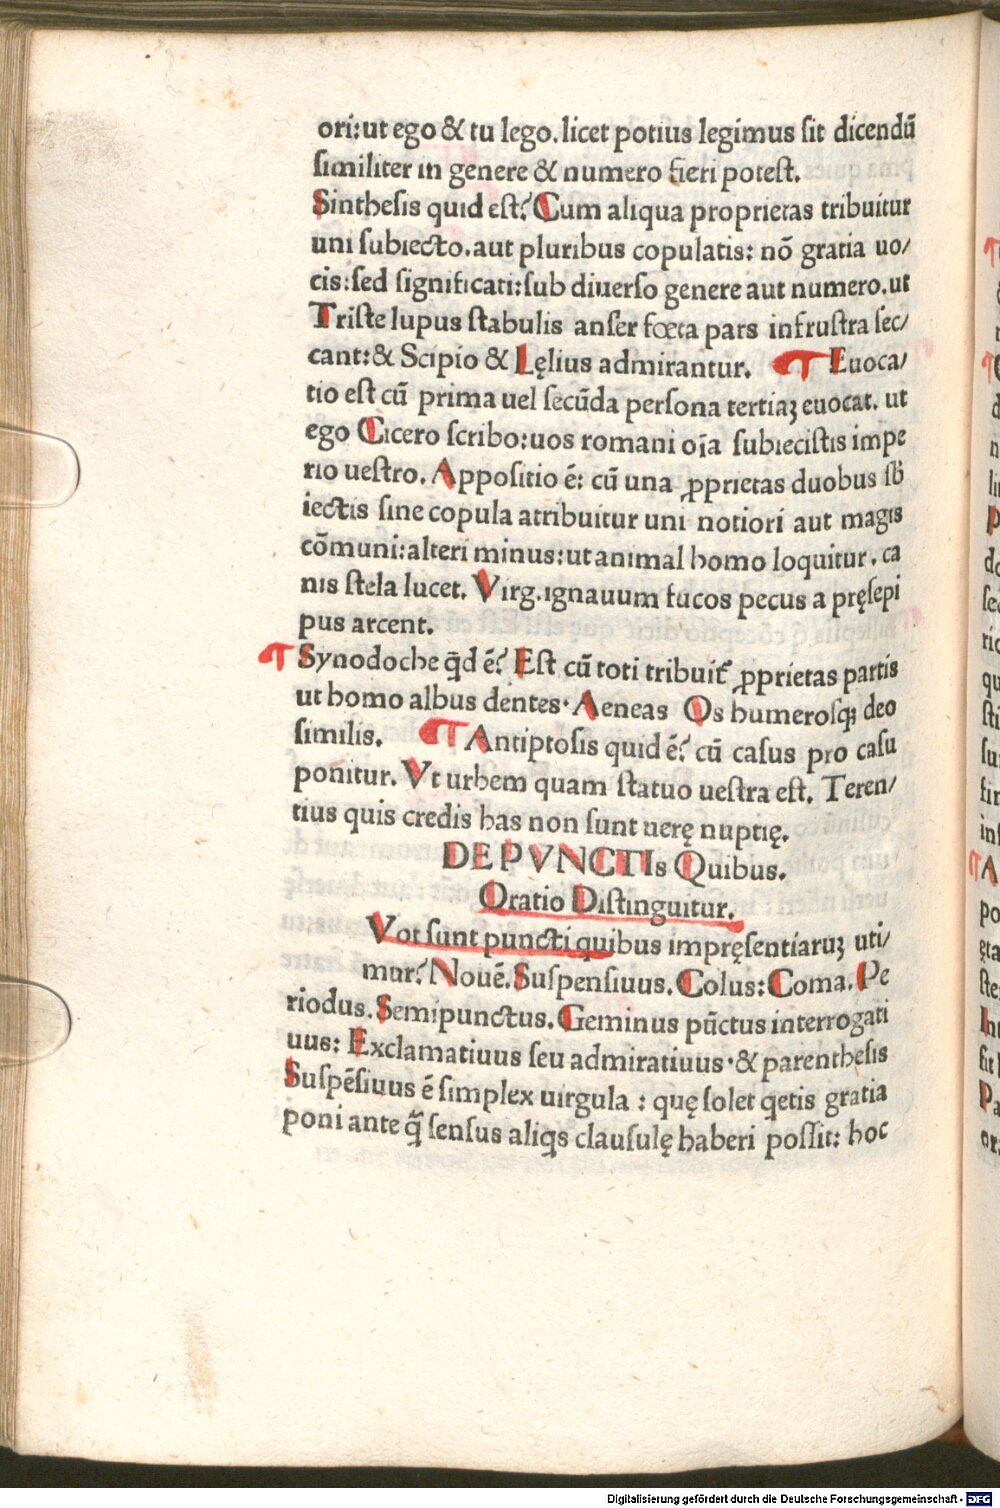 ori: ut ego & tu lego. licet potius legimus sit dicendū
similiter in genere & numero fieri potest.
Sinthesis quid est? Cum aliqua proprietas tribuitur
uni subiecto. aut pluribus copulatis: nō gratia uo/
cis: sed significati: sub diuerso genere aut numero. ut
Triste lupus stabulis anser fœta pars infrustra sec/
cant: & Scipio & Lęlius admirantur. ¶ Euoca/
tio est cū prima uel secūda persona tertiaꝫ euocat. ut
ego Cicero scribo: uos romani oīa subiecistis impe
rio uestro. Appositio ē: cū una ꝓprietas duobus sb̄
iectis sine copula atribuitur uni notiori aut magis
cōmuni: alteri minus: ut animal homo loquitur. ca
nis stela lucet. Virg. ignauum fucos pecus a pręsepi
pus arcent.
¶ Synodoche qd̄ ē? Est cū toti tribuit̄ ꝓprietas partis
ut homo albus dentes. Aeneas Os humerosqꝫ deo
similis. ¶ Antiptosis quid ē? cū casus pro casu
ponitur. Vt urbem quam statuo uestra est. Teren/
tius quis credis has non sunt uerę nuptię.
DE PVNCTIs Quibus.
Oratio Distinguitur.
Vot sunt puncti quibus impręsentiaruꝫ uti/
mur? Nouē. Suspensiuus. Colus: Coma. Pe
riodus. Semipunctus. Geminus pūctus interrogati
uus: Exclamatiuus seu admiratiuus. & parenthesis
Suspēsiuus ē simplex uirgula : quę solet qetis gratia
poni ante q̄ sensus aliqs clausulę haberi possit: hoc
Digitalisierung gefördert durch die Deutsche Forschungsgemeinschaft - DFG